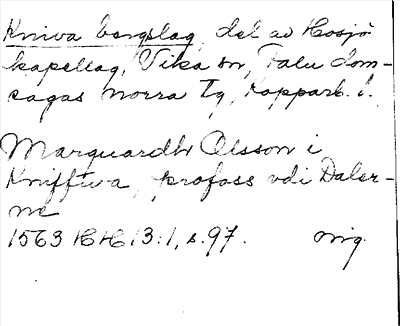 Kniva bergslag, del av Hosjö
kapellag, Vika sn, Falu dom-
sagas norra tg, Kopparb. l.
Marquardh Olsson i
Kniffwa, profoss vdi Daler-
ne
1563 HH 13:1, s. 97.